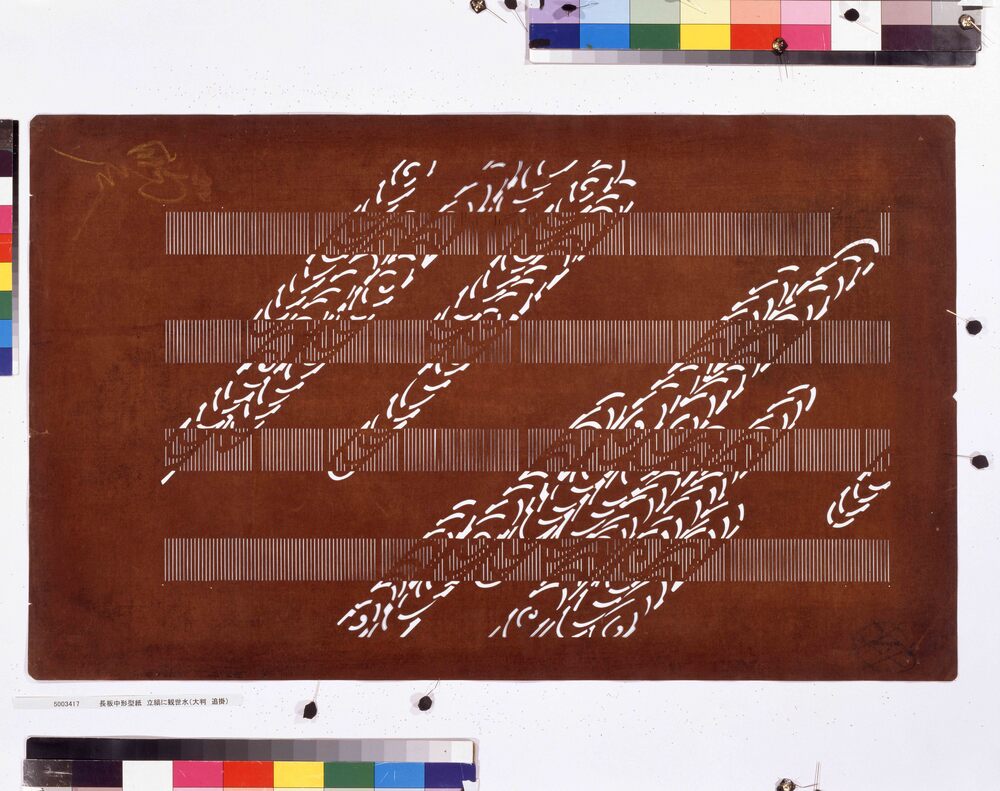 5003417 長板中形型紙 立縞に観世水(大判 追掛)